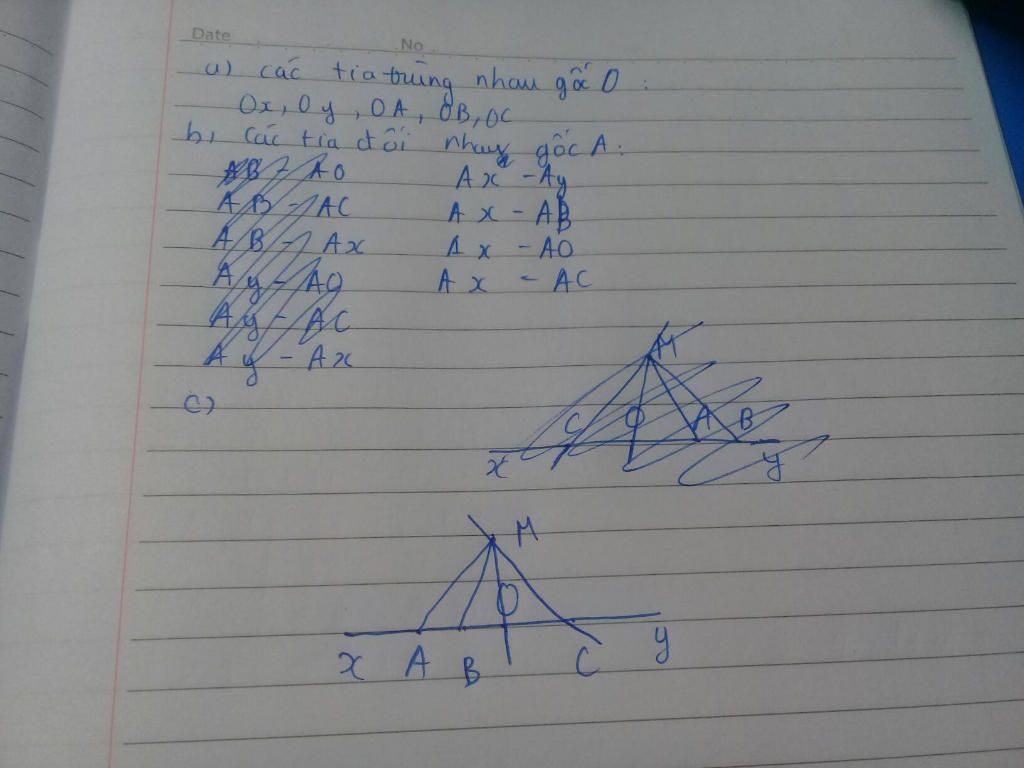 Date No
a) các tia trùng nhau gốc O :
Ox, Oy, OA, OB, OC
b, các tia đối nhau gốc A :
AB - AO Ax - Ay
AB - AC Ax - AB
AB - Ax Ax - AO
Ay - AO Ax - AC
Ay - AC
Ay - Ax
c)
M
C O A B
x y
M
O
x A B C y